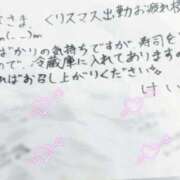 さま、くリスマス出勤お疲れ様
m(..)m
ばかりの気持ちですが、寿司を
ので、冷蔵庫に入れてありますの
ればお召し上がりください。
けい